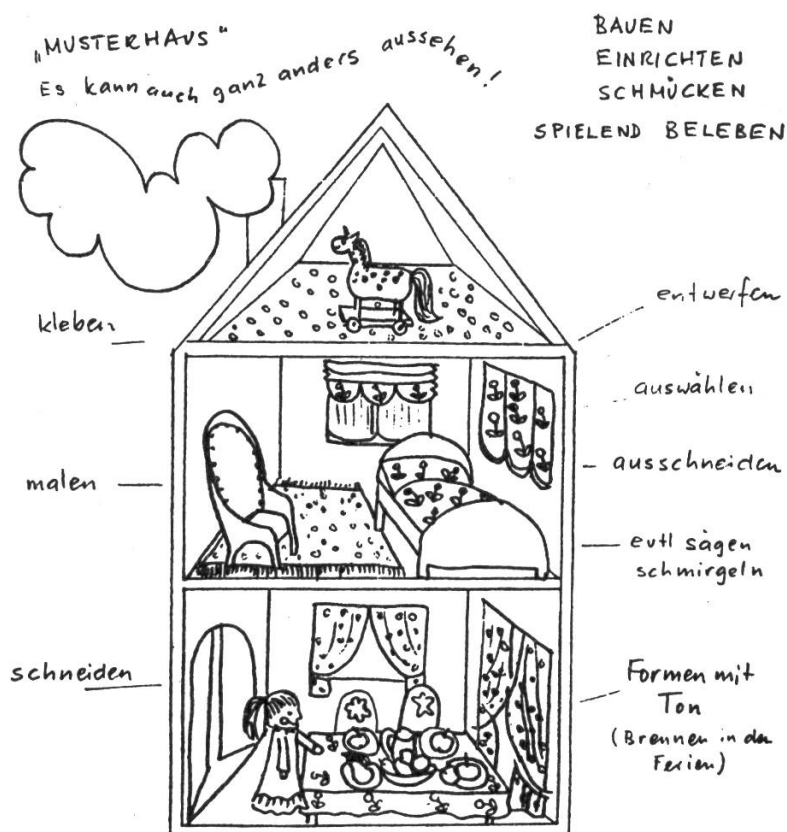 „MUSTERHAUS“
Es kann auch ganz anders aussehen!
BAUEN
EINRICHTEN
SCHMÜCKEN
SPIELEND BELEBEN
kleben
malen
schneiden
entwerfen
auswählen
ausschneiden
evtl sägen
schmirgeln
Formen mit
Ton
(Brennen in den
Ferien)